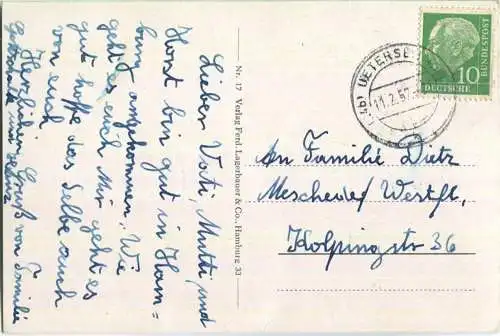 Lieber Vati, Mutti und
Horst bin gut in Ham=
burg angekommen. Wie
geht es euch Mir geht es
gut hoffe das Selbe auch
von euch
Herzlichen Gruß von Familie
Nr. 17 Verlag Ferd. Lagerbauer & Co., Hamburg 33
UETERSE
11.2.57
10
DEUTSCHE
BUNDESPOST
An Familie Dietz
Meschede/ Westfl.
Kolpingstr 36